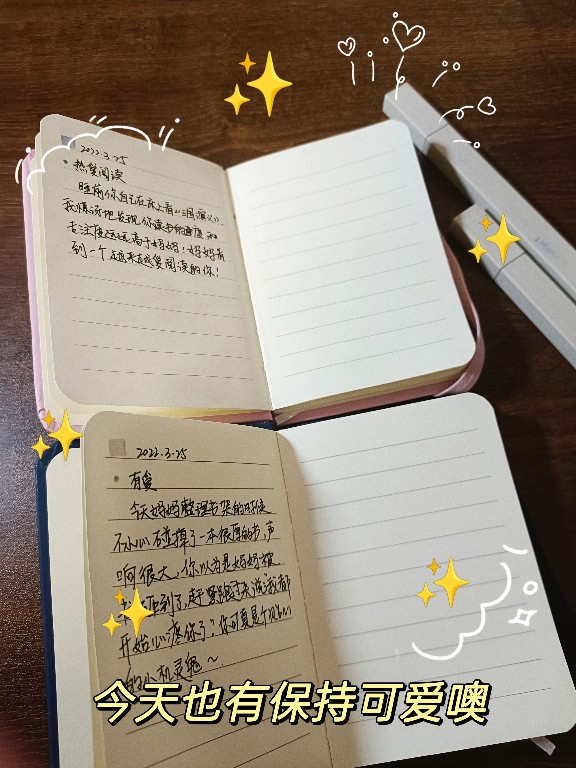 2022.3.25
热爱阅读
睡前你自己在床上看《三国演义》,
我惊讶地发现你读书的速度和
专注度远远高于妈妈!妈妈看
到一个越来越热爱阅读的你!
2022.3.25
有爱
今天妈妈整理书架的时候
不小心碰掉了一本很厚的书,声
响很大,你以为是妈妈被
砸到了,赶紧跑过来说我都
开始心疼你了,你可真是个
的小机灵鬼~
今天也有保持可爱噢